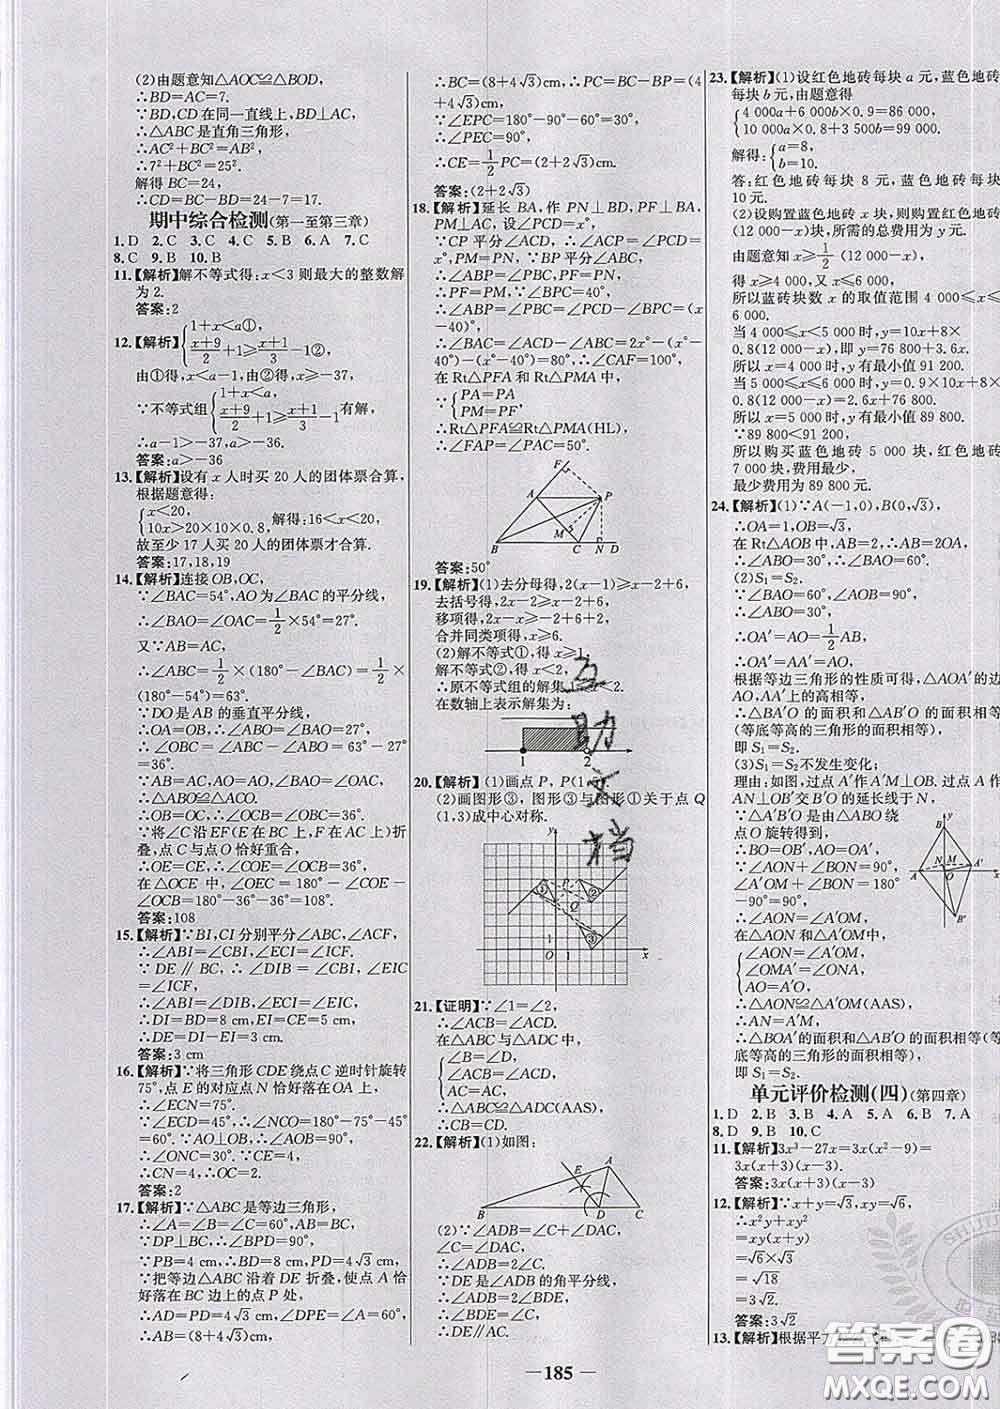 (2)由题意知△AOC≌△BOD,
∴BD=AC=7.
∵BD,CD在同一直线上,BD⊥AC,
∴△ABC是直角三角形,
∴AC²+BC²=AB²,
∴7²+BC²=25².
解得BC=24,
∴CD=BC-BD=24-7=17.
期中综合检测(第一至第三章)
1.D 2.C 3.C 4.C 5.C 6.A 7.C
8.C 9.B 10.B
11.【解析】解不等式得:x<3则最大的整数解
为2.
答案:2
12.【解析】{1+x<a①,
(x+9)/2+1≥(x+1)/3-1②,
由①得,x<a-1,由②得,x≥-37,
∵不等式组{1+x<a,
(x+9)/2+1≥(x+1)/3-1有解,
∴a-1>-37,a>-36.
答案:a>-36
13.【解析】设有x人时买20人的团体票合算,
根据题意得:
{x<20,
10x>20×10×0.8,解得:16<x<20.
故至少17人买20人的团体票才合算.
答案:17,18,19
14.【解析】连接OB,OC,
∵∠BAC=54°,AO为∠BAC的平分线,
∴∠BAO=∠OAC=1/2×54°=27°.
又∵AB=AC,
∴∠ABC=1/2×(180°-∠BAC)=1/2×
(180°-54°)=63°.
∵DO是AB的垂直平分线,
∴OA=OB,∴∠ABO=∠BAO=27°.
∴∠OBC=∠ABC-∠ABO=63°-27°
=36°.
∴△AOB≌△AOC,∴OB=OC,
∴∠OCB=∠OBC=36°.
∵将∠C沿EF(E在BC上,F在AC上)折
叠,点C与点O恰好重合,
∴OE=CE,∴∠COE=∠OCB=36°.
在△OCE中,∠OEC=180°-∠COE-
∠OCB=180°-36°-36°=108°.
答案:108
15.【解析】∵BI,CI分别平分∠ABC,∠ACF,
∴∠ABI=∠CBI,∠ECI=∠ICF.
∵DE∥BC,∴∠DIB=∠CBI,∠EIC
=∠ICF,
∴∠ABI=∠DIB,∠ECI=∠EIC,
∴DI=BD=8 cm,EI=CE=5 cm,
∴DE=DI-EI=3 cm.
答案:3 cm
16.【解析】∵将三角形CDE绕点C逆时针旋转
75°,点E的对应点N恰好落在OA上,
∴∠ECN=75°.
∵∠ECD=45°,∴∠OCN=180°-75°-45°
=60°.∵AO⊥OB,∴∠AOB=90°,
∴∠ONC=30°.∵EC=4,
∴CN=4,∴OC=2.
答案:2
17.【解析】∵△ABC是等边三角形,
∴∠A=∠B=∠C=60°,AB=BC.
∵DP⊥BC,∴∠BPD=90°,
∵PB=4 cm,∴BD=8 cm,PD=4√3 cm.
∵把等边△ABC沿着DE折叠,使点A恰
好落在BC边上的点P处,
∴AD=PD=4√3 cm,∠DPE=∠A=60°,
∴AB=(8+4√3)cm,
∴BC=(8+4√3)cm,
∴PC=BC-BP=(4+4√3)cm,
∵∠EPC=180°-90°-60°=30°,
∴∠PEC=90°.
∴CE=1/2PC=(2+2√3)cm.
答案:(2+2√3)
18.【解析】延长BA,作PN⊥BD,PF⊥BA,
PM⊥AC,设∠PCD=x°,
∵CP平分∠ACD,∴∠ACP=∠PCD=x°,
∠ABP=∠PBC,PF=PN,PM=PN,
∴PF=PM,∵∠BPC=40°,
∴∠ABP=∠PBC=∠PCD-∠BPC=(x
-40)°,
∴∠BAC=∠ACD-∠ABC=2x°-(x°-
40°)-(x°-40°)=80°,∴∠CAF=100°,
在Rt△PFA和Rt△PMA中,
∵{PA=PA
PM=PF,
∴Rt△PFA≌Rt△PMA(HL),
∴∠FAP=∠PAC=50°.
F A P S M B C N D
答案:50°
19.【解析】(1)去分母得,2(x-1)≥x-2+6,
去括号得,2x-2≥x-2+6,
移项得,2x-x≥-2+6+2,
合并同类项得,x≥6.
(2)解不等式①,得x≥1,
解不等式②,得x<2.
∴原不等式组的解集1≤x<2.
在数轴上表示解集为:
1 2
20.【解析】(1)画点P,P(1
(2)画图形③,图形③与图形①关于点Q
(1,3)成中心对称.
y ① P ② Q ③ 1 O 1 x
21.【证明】∵∠1=∠2,
∴∠ACB=∠ACD.
在△ABC与△ADC中,
{∠B=∠D,
∠ACB=∠ACD,
AC=AC,
∴△ABC≌△ADC(AAS),
∴CB=CD.
22.【解析】(1)如图:
A E B D C
(2)∵∠ADB=∠C+∠DAC,
∠C=∠DAC,
∴∠ADB=2∠C.
∵DE是∠ADB的角平分线,
∴∠ADB=2∠BDE,
∴∠BDE=∠C,
∴DE∥AC.
23.【解析】(1)设红色地砖每块a元,蓝色地砖
每块b元,由题意得
{4 000a+6 000b×0.9=86 000,
10 000a×0.8+3 500b=99 000.
解得:{a=8,
b=10.
答:红色地砖每块8元,蓝色地砖每块
10元.
(2)设购置蓝色地砖x块,则购置红色地砖
(12 000-x)块,所需的总费用为y元.
由题意知x≥1/2(12 000-x),
得x≥4 000,又x≤6 000,
所以蓝砖块数x的取值范围4 000≤x≤
6 000.
当4 000≤x<5 000时,y=10x+8×
0.8(12 000-x),即y=76 800+3.6x,
所以x=4 000时,y有最小值91 200.
当5 000≤x≤6 000时,y=0.9×10x+8×
0.8(12 000-x)=2.6x+76 800.
所以x=5 000时,y有最小值89 800.
∵89 800<91 200,
所以购买蓝色地砖5 000块,红色地砖
7 000块,费用最少,
最少费用为89 800元.
24.【解析】(1)∵A(-1,0),B(0,√3),
∴OA=1,OB=√3,
在Rt△AOB中,AB=2,∴AB=2OA,
∴∠ABO=30°,∴∠BAO=60°.
(2)S₁=S₂.
∵∠BAO=60°,∠AOB=90°,
∴∠ABO=30°,
∴OA′=AO=1/2AB,
∴OA′=AA′=AO,
根据等边三角形的性质可得,△AOA′的
边AO,AA′上的高相等,
∴△BA′O的面积和△AB′O的面积相等
(等底等高的三角形的面积相等),
即S₁=S₂.
(3)S₁=S₂不发生变化;
理由:如图,过点A′作A′M⊥OB.过点A作
AN⊥OB′交B′O的延长线于N,
∵△A′B′O是由△ABO绕
点O旋转得到,
∴BO=OB′,AO=OA′,
∵∠AON+∠BON=90°,
∠A′OM+∠BON=180°
-90°=90°,
∴∠AON=∠A′OM,
在△AON和△A′OM中,
{∠AON=∠A′OM,
∠OMA′=∠ONA,
AO=A′O,
y B N M A O A′ x B′
∴△AON≌△A′OM(AAS),
∴AN=A′M,
∴△BOA′的面积和△AB′O的面积相等(等
底等高的三角形的面积相等),
即S₁=S₂.
单元评价检测(四)(第四章)
1.D 2.B 3.B 4.A 5.A 6.B 7.A
8.D 9.B 10.C
11.【解析】3x³-27x=3x(x²-9)=
3x(x+3)(x-3).
答案:3x(x+3)(x-3)
12.【解析】∵x+y=√3,xy=√6,
∴x²y+xy²
=xy(x+y)
=√6×√3
=√18
=3√2.
答案:3√2
13.【解析】根据平方
互助文档
185
答案圈
MXQE.COM